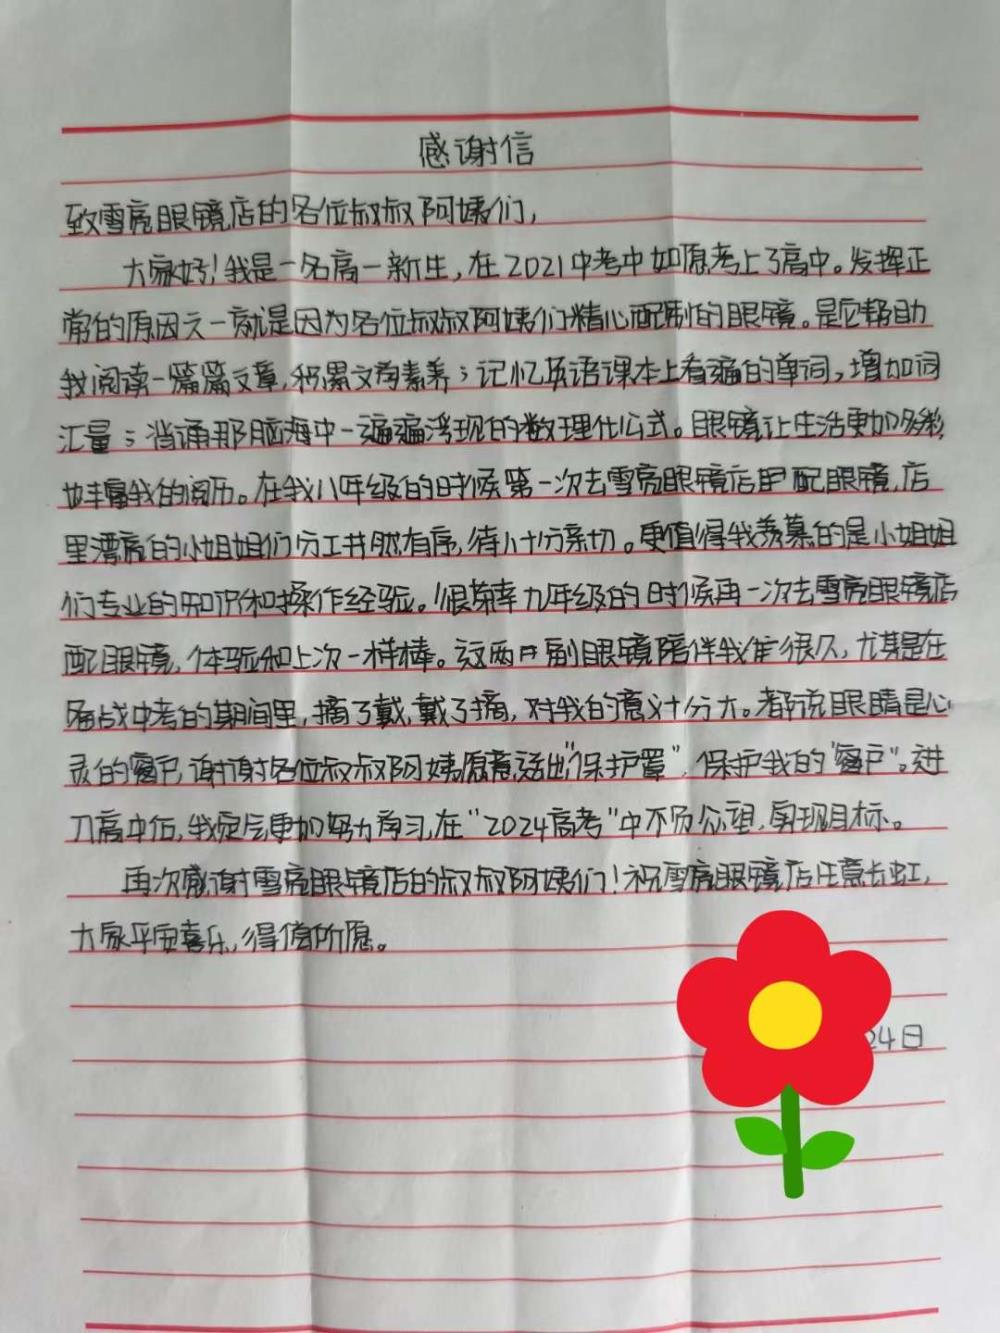 感谢信
致雪亮眼镜店的各位叔叔阿姨们，
大家好！我是一名高一新生，在2021中考中如愿考上了高中。发挥正
常的原因之一就是因为各位叔叔阿姨们精心配制的眼镜。是它帮助
我阅读一篇篇文章，积累文学素养；记忆英语课本上看遍的单词，增加词
汇量；背诵那脑海中一遍遍浮现的数理化公式。眼镜让生活更加多彩，
也丰富我的阅历。在我八年级的时候第一次去雪亮眼镜店配眼镜，店
里漂亮的小姐姐们分工井然有序，待人十分亲切。更值得我羡慕的是小姐姐
们专业的知识和操作经验。很荣幸九年级的时候再一次去雪亮眼镜店
配眼镜，体验和上次一样棒。这两副眼镜陪伴我很久，尤其是在
备战中考的期间里，摘了戴，戴了摘，对我的意义十分大。都说眼睛是心
灵的窗户，谢谢各位叔叔阿姨愿意送出"保护罩"，保护我的"窗户"。进
入高中后，我定会更加努力学习，在"2024高考"中不负众望，实现目标。
再次感谢雪亮眼镜店的叔叔阿姨们！祝雪亮眼镜店生意长虹，
大家平安喜乐，得偿所愿。
24日